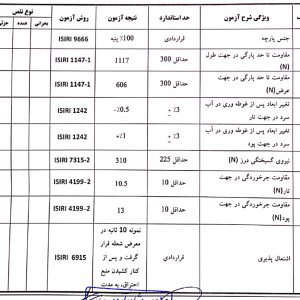 ویژگی شرح آزمون حد استاندارد نتیجه آزمون روش آزمون نوع نقص
بحرانی عمده
جنس پارچه قراردادی 100٪ پنبه ISIRI 9666
مقاومت تا حد پارگی در جهت طول (N) حداقل 300 1117 ISIRI 1147-1
مقاومت تا حد پارگی در جهت عرض(N) حداقل 300 606 ISIRI 1147-1
تغییر ابعاد پس از غوطه وری در آب سرد در جهت تار ±3٪ -0.5٪ ISIRI 1242
تغییر ابعاد پس از غوطه وری در آب سرد در جهت پود ±3٪ +1٪ ISIRI 1242
نیروی گسیختگی درز (N) حداقل 225 310 ISIRI 7315-2
مقاومت جرخوردگی در جهت تار(N) حداقل 10 10.5 ISIRI 4199-2
مقاومت جرخوردگی در جهت پود(N) حداقل 10 13 ISIRI 4199-2
اشتعال پذیری قراردادی
نمونه 10 ثانیه در
معرض شعله قرار
گرفت و پس از
کنار کشیدن منبع
احتراق، به مدت
ISIRI 6915